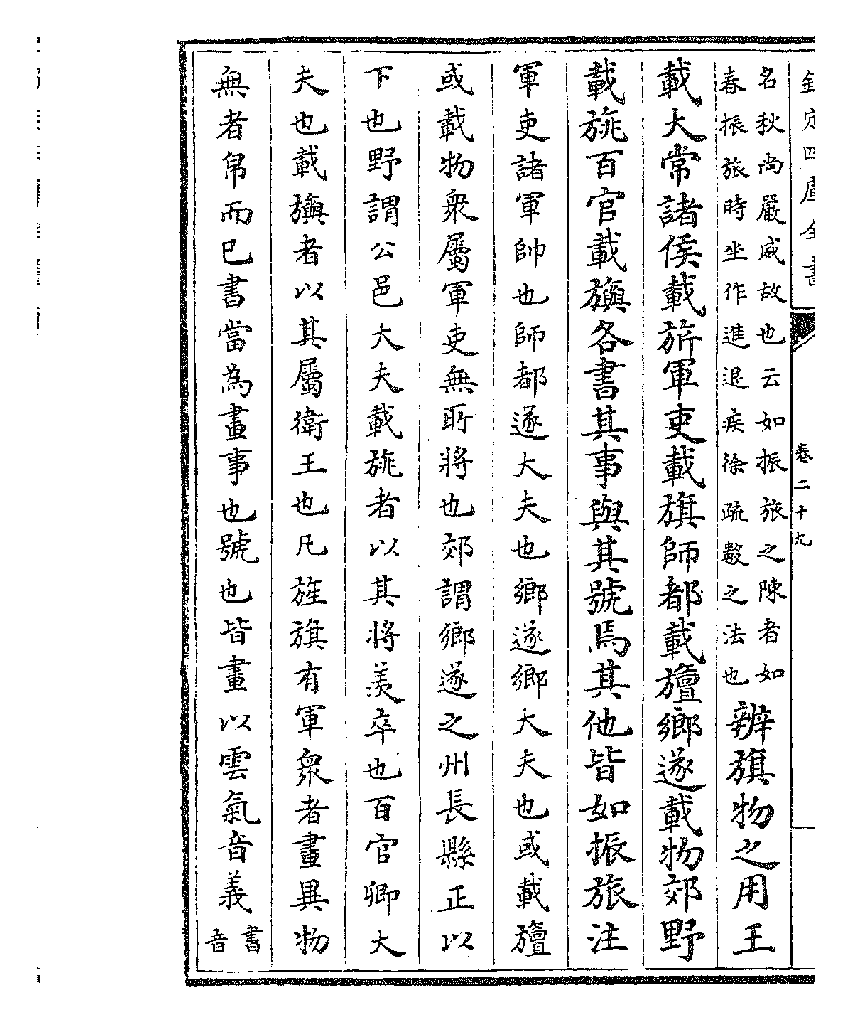 欽定四庫全書
卷二十九
名秋尚嚴威故也云如振旅之陳者如
春振旅時坐作進退疾徐疏數之法也
辨旗物之用王
載大常諸侯載旂軍吏載旗師都載旜鄉遂載物郊野
載旐百官載旟各書其事與其號焉其他皆如振旅注
軍吏諸軍帥也師都遂大夫也鄉遂鄉大夫也或載旜
或載物衆屬軍吏無所將也郊謂鄉遂之州長縣正以
下也野謂公邑大夫載旐者以其將羨卒也百官卿大
夫也載旟者以其屬衛王也凡旌旗有軍衆者畫異物
無者帛而已書當為畫事也號也皆畫以雲氣音義
書
音